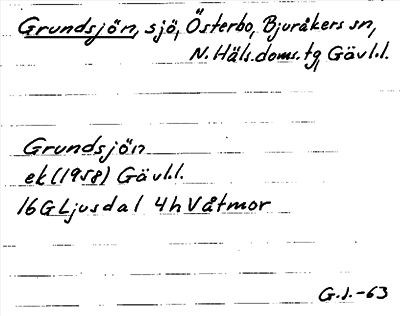 Grundsjön, sjö, Österbo, Bjuråkers sn,
N. Häls. doms. tg, Gävl.l.
Grundsjön
ek (1958) Gävl.l.
16G Ljusdal 4h Våtmor
G.I.-63